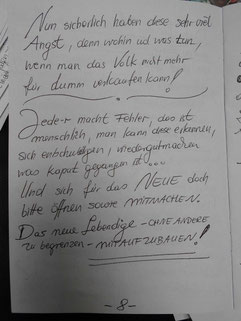 Nun sicherlich haben diese sehr viel
Angst, denn wohin und was tun,
wenn man das Volk nicht mehr
für dumm verkaufen kann!
Jede-r macht Fehler, das ist
menschlich, man kann diese erkennen,
sich entschuldigen, wiedergutmachen
was kaput gegangen ist...
Und sich für das NEUE doch
bitte öffnen sowie MITMACHEN.
Das neue Lebendige - OHNE ANDERE
zu begrenzen - MITAUFZUBAUEN!
- 8 -